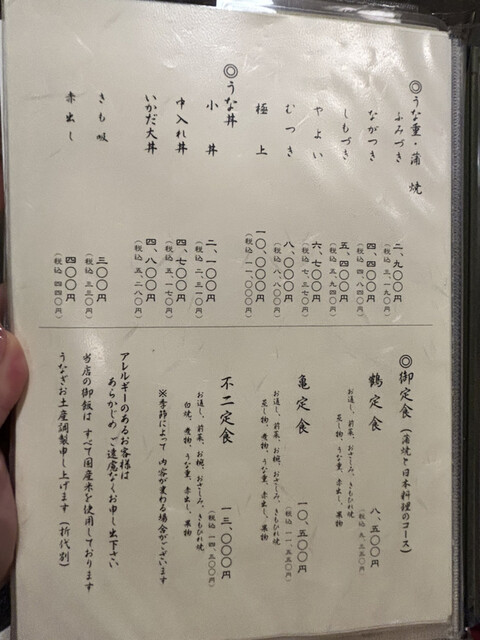 ◎うな重・蒲焼
ふみづき 二、九〇〇円
(税込 三、一九〇円)
ながつき 四、四〇〇円
(税込 四、八四〇円)
しもづき 五、四〇〇円
(税込 五、九四〇円)
やよい 六、七〇〇円
(税込 七、三七〇円)
むつき 八、〇〇〇円
(税込 八、八〇〇円)
極上 一〇、〇〇〇円
(税込 一一、〇〇〇円)
◎うな丼
小丼 二、一〇〇円
(税込 二、三一〇円)
中入れ丼 四、七〇〇円
(税込 五、一七〇円)
いかだ大丼 四、八〇〇円
(税込 五、二八〇円)
きも吸 三〇〇円
(税込 三三〇円)
赤出し 四〇〇円
(税込 四四〇円)
◎御定食(蒲焼と日本料理のコース)
鶴定食 八、五〇〇円
(税込 九、三五〇円)
お通し、前菜、お椀、おさしみ、きもひれ焼
蒸し物、うな重、赤出し、果物
亀定食 一〇、五〇〇円
(税込 一一、五五〇円)
お通し、前菜、お椀、おさしみ、きもひれ焼
蒸し物、煮物、うな重、赤出し、果物
不二定食 一三、〇〇〇円
(税込 一四、三〇〇円)
お通し、前菜、お椀、おさしみ、きもひれ焼
白焼、煮物、うな重、赤出し、果物
※季節によって 内容が変わる場合がございます
アレルギーのあるお客様は
あらかじめ ご遠慮なくお申し出下さい
当店の御飯は すべて国産米を使用しております
うなぎお土産調製申し上げます(折代別)